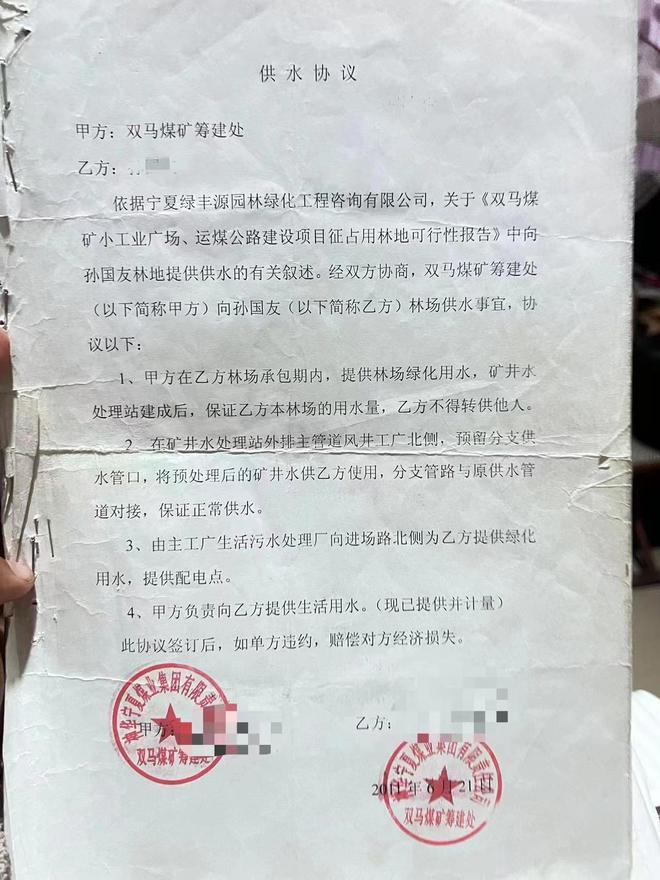 供水协议
甲方：双马煤矿筹建处
乙方：
依据宁夏绿丰源园林绿化工程咨询有限公司，关于《双马煤
矿小工业广场、运煤公路建设项目征占用林地可行性报告》中向
孙国友林地提供供水的有关叙述。经双方协商，双马煤矿筹建处
（以下简称甲方）向孙国友（以下简称乙方）林场供水事宜，协
议以下：
1、甲方在乙方林场承包期内，提供林场绿化用水，矿井水
处理站建成后，保证乙方本林场的用水量，乙方不得转供他人。
2、在矿井水处理站外排主管道风井工广北侧，预留分支供
水管口，将预处理后的矿井水供乙方使用，分支管路与原供水管
道对接，保证正常供水。
3、由主工广生活污水处理厂向进场路北侧为乙方提供绿化
用水，提供配电点。
4、甲方负责向乙方提供生活用水。（现已提供并计量）
此协议签订后，如单方违约，赔偿对方经济损失。
甲方：
乙方：
神华宁夏煤业集团有限责
双马煤矿筹建处
2011年6月21日
神华宁夏煤业集团有限责任公司
双马煤矿筹建处